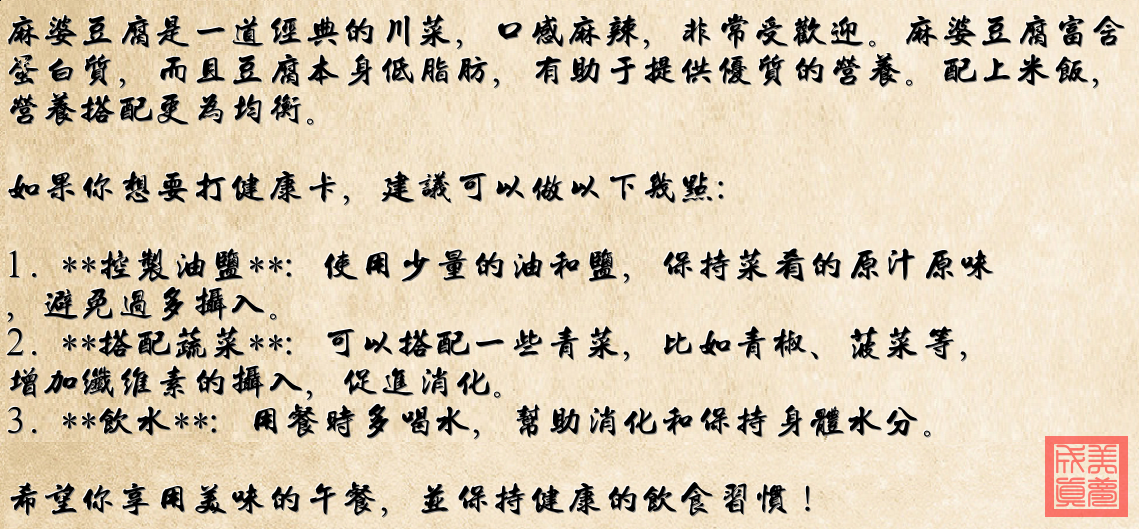 麻婆豆腐是一道經典的川菜，口感麻辣，非常受歡迎。麻婆豆腐富含
蛋白質，而且豆腐本身低脂肪，有助于提供優質的營養。配上米飯，
營養搭配更為均衡。
如果你想要打健康卡，建議可以做以下幾點：
1. **控製油鹽**：使用少量的油和鹽，保持菜肴的原汁原味
，避免過多攝入。
2. **搭配蔬菜**：可以搭配一些青菜，比如青椒、菠菜等，
增加纖維素的攝入，促進消化。
3. **飲水**：用餐時多喝水，幫助消化和保持身體水分。
希望你享用美味的午餐，並保持健康的飲食習慣！
美夢
成真